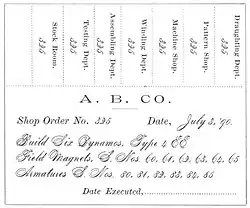 Stock Room.
335
Testing Dept.
335
Assembling Dept.
335
Winding Dept.
335
Machine Shop.
335
Pattern Shop.
335
Draughting Dept.
335
A. B. CO.
Shop Order No. 335 Date, July 3, '90.
Build Six Dynamos, Type 4 EE
Field Magnets, S. Nos. 60, 61, 62, 63, 64, 65
Armatures S. Nos. 80, 81, 82, 83, 84, 85
Date Executed,